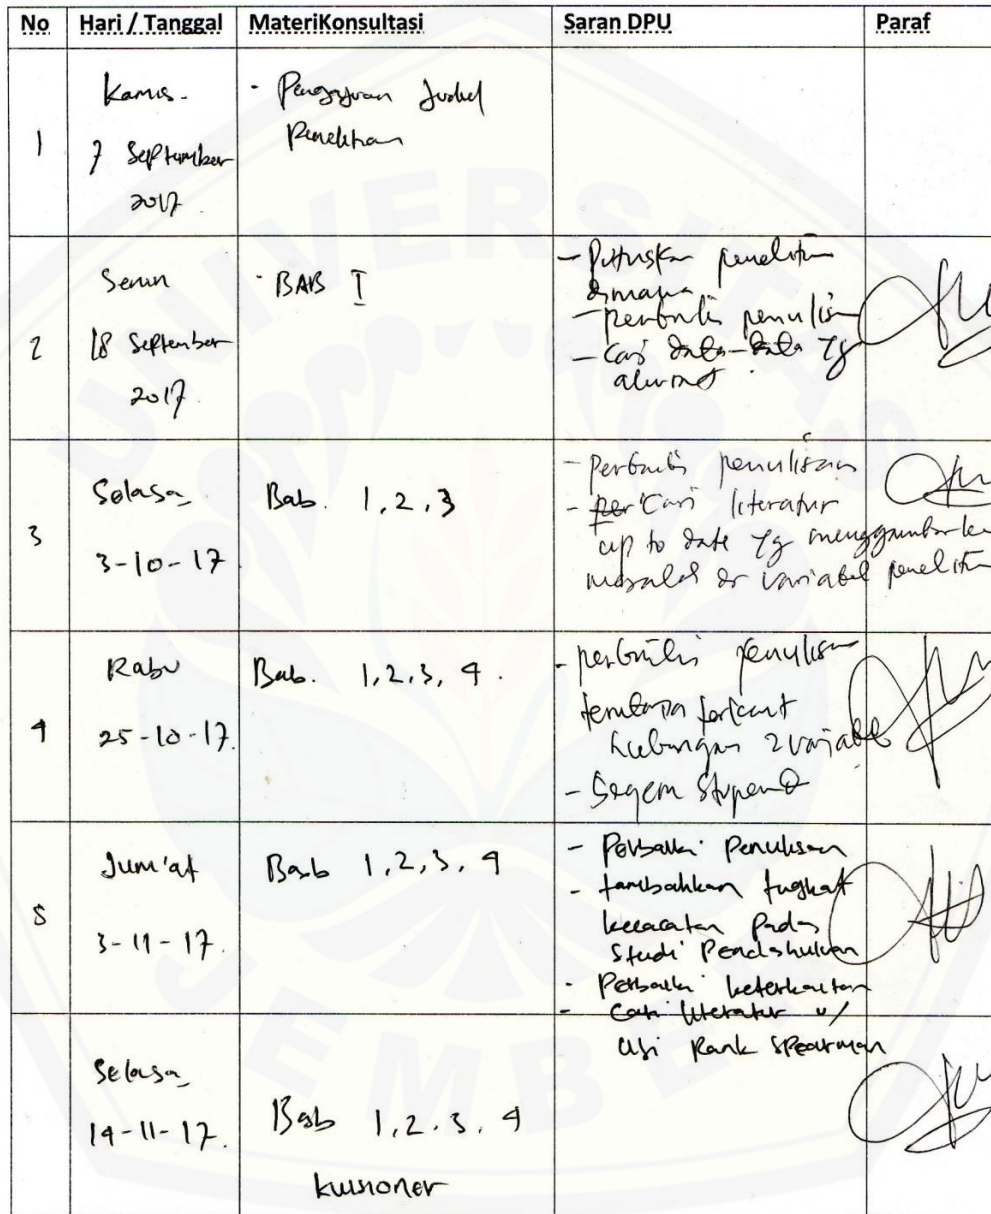 No Hari / Tanggal MateriKonsultasi Saran DPU Paraf
1
Kamis
7 September
2017
- Pengajuan Judul
Penelitian
2
Senin
18 September
2017
- BAB I
- Putuskan penelitian
dimana
- perbaiki penulisan
- Cari data-data yg
akurat
3
Selasa
3-10-17
Bab. 1, 2, 3
- Perbaiki penulisan
- Cari literatur
up to date yg menggambarkan
masalah variabel penelitian
4
Rabu
25-10-17
Bab. 1, 2, 3, 4.
- perbaiki penulisan
terutama terkait
hubungan 2 variabel
- Segera
5
Jum'at
3-11-17
Bab 1, 2, 3, 4
- Perbaiki Penulisan
- tambahkan tingkat
kecacatan Pada
Studi Pendahuluan
- Perbaiki keterkaitan
- Cari literatur u/
Uji Rank Spearman
Selasa
14-11-17.
Bab 1, 2, 3, 4
kuisioner
UNIVERSITAS JEMBER